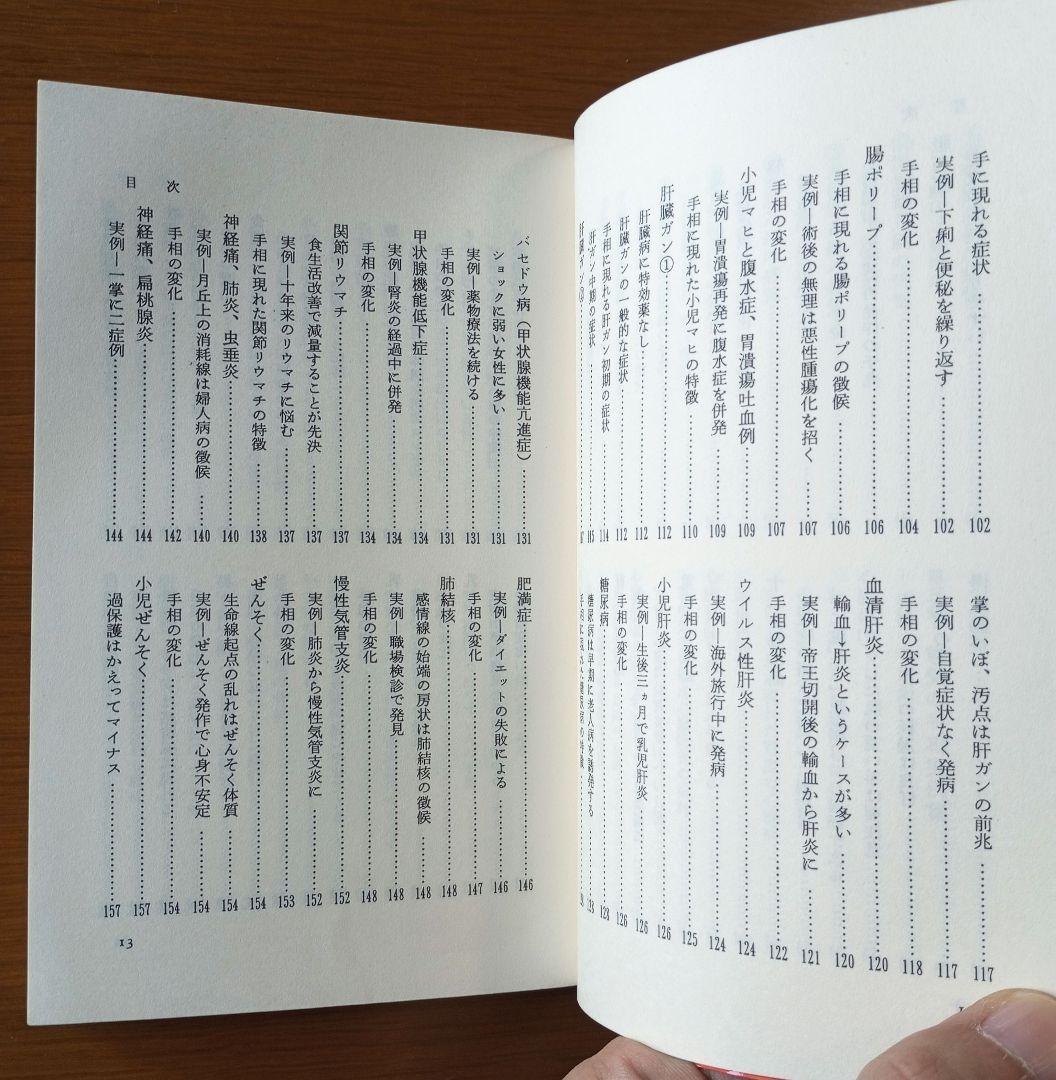 手に現れる症状……102
実例―下痢と便秘を繰り返す……102
手相の変化……104
腸ポリープ……106
手相に現れる腸ポリープの徴候……106
実例―術後の無理は悪性腫瘍化を招く……107
手相の変化……107
小児マヒと腹水症、胃潰瘍吐血例……109
実例―胃潰瘍再発に腹水症を併発……109
手相に現れた小児マヒの特徴……110
肝臓ガン①……112
肝臓病に特効薬なし……112
肝臓ガンの一般的な症状……112
手相に現れる肝ガン初期の症状……114
肝ガン中期の症状……115
掌のいぼ、汚点は肝ガンの前兆……117
実例―自覚症状なく発病……117
手相の変化……118
血清肝炎……120
輸血→肝炎というケースが多い……120
実例―帝王切開後の輸血から肝炎に……121
手相の変化……122
ウイルス性肝炎……124
実例―海外旅行中に発病……124
手相の変化……125
小児肝炎……126
実例―生後三ヵ月で乳児肝炎……126
手相の変化……126
糖尿病……128
糖尿病は早期に老人病を誘発する……128
バセドウ病（甲状腺機能亢進症）……131
ショックに弱い女性に多い……131
実例―薬物療法を続ける……131
手相の変化……131
甲状腺機能低下症……134
実例―腎炎の経過中に併発……134
手相の変化……134
関節リウマチ……137
食生活改善で減量することが先決……137
実例―十年来のリウマチに悩む……137
手相に現れた関節リウマチの特徴……138
神経痛、肺炎、虫垂炎……140
実例―月丘上の消耗線は婦人病の徴候……140
手相の変化……142
神経痛、扁桃腺炎……144
実例―一掌に二症例……144
肥満症……146
実例―ダイエットの失敗による……146
手相の変化……147
肺結核……148
感情線の始端の房状は肺結核の徴候……148
実例―職場検診で発見……148
手相の変化……148
慢性気管支炎……152
実例―肺炎から慢性気管支炎に……152
手相の変化……153
ぜんそく……154
生命線起点の乱れはぜんそく体質……154
実例―ぜんそく発作で心身不安定……154
手相の変化……154
小児ぜんそく……157
過保護はかえってマイナス……157
目次
13